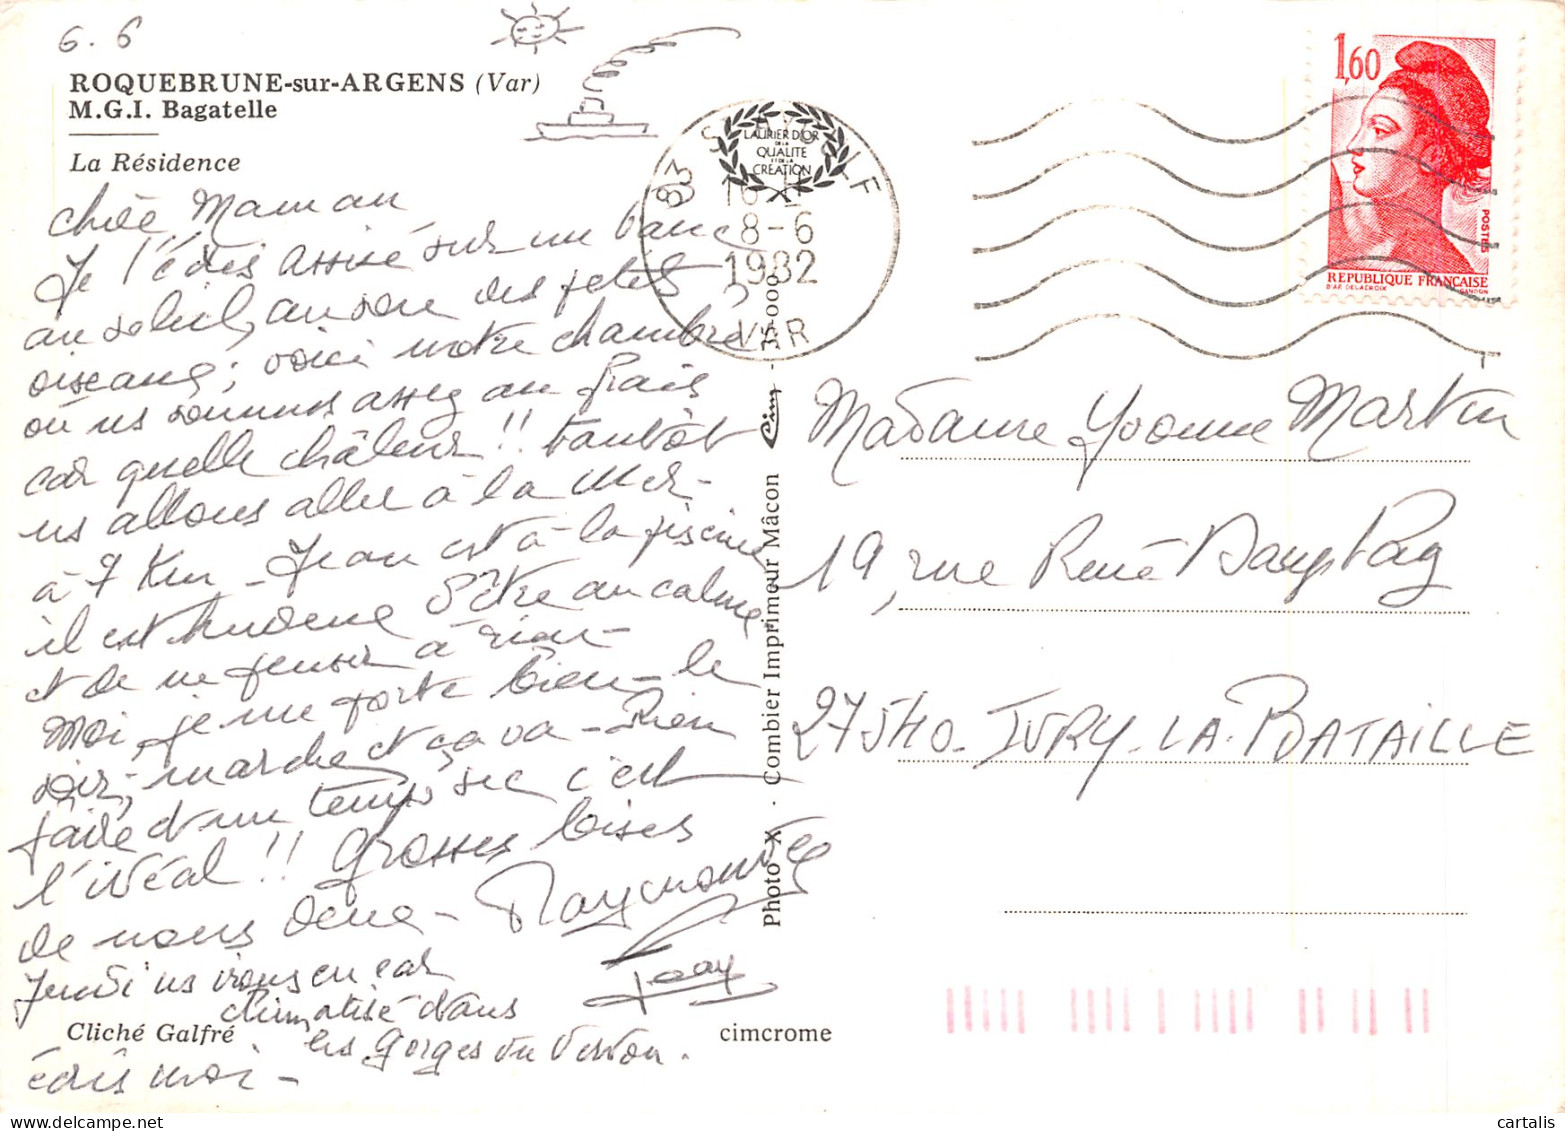 6.6
ROQUEBRUNE-sur-ARGENS (Var)
M.G.I. Bagatelle
La Résidence
chère Maman
Je t'écris assise sur un banc
au soleil, au son des petits
oiseaux; voici notre chambre
où ns sommes assez au frais
car quelle châleur!! tantôt
ns allons aller à la Mer -
à 7 Km - Jean est à la piscine
il est heureux d'être au calme
et de ne penser à rien -
Moi, je me porte bien - le
soir, marche et ça va - Rien
faire et un temps sec c'est
l'idéal!! grosses bises
de nous deux - Raymonde
Jean
Jeudi ns irons en car
climatisé dans
les gorges du Verdon.
écris moi -
Cliché Galfré
cimcrome
Photo X - Combier Imprimeur Mâcon
Cim
LAURIER D'OR
DE LA
QUALITE
ET DE LA
CREATION
83
8-6
1982
VAR
1,60
POSTES
REPUBLIQUE FRANÇAISE
D'AP. DELACROIX GANDON
Madame Yvonne Martin
19, rue René
27540 - IVRY-LA-BATAILLE
© cartalis
www.delcampe.net